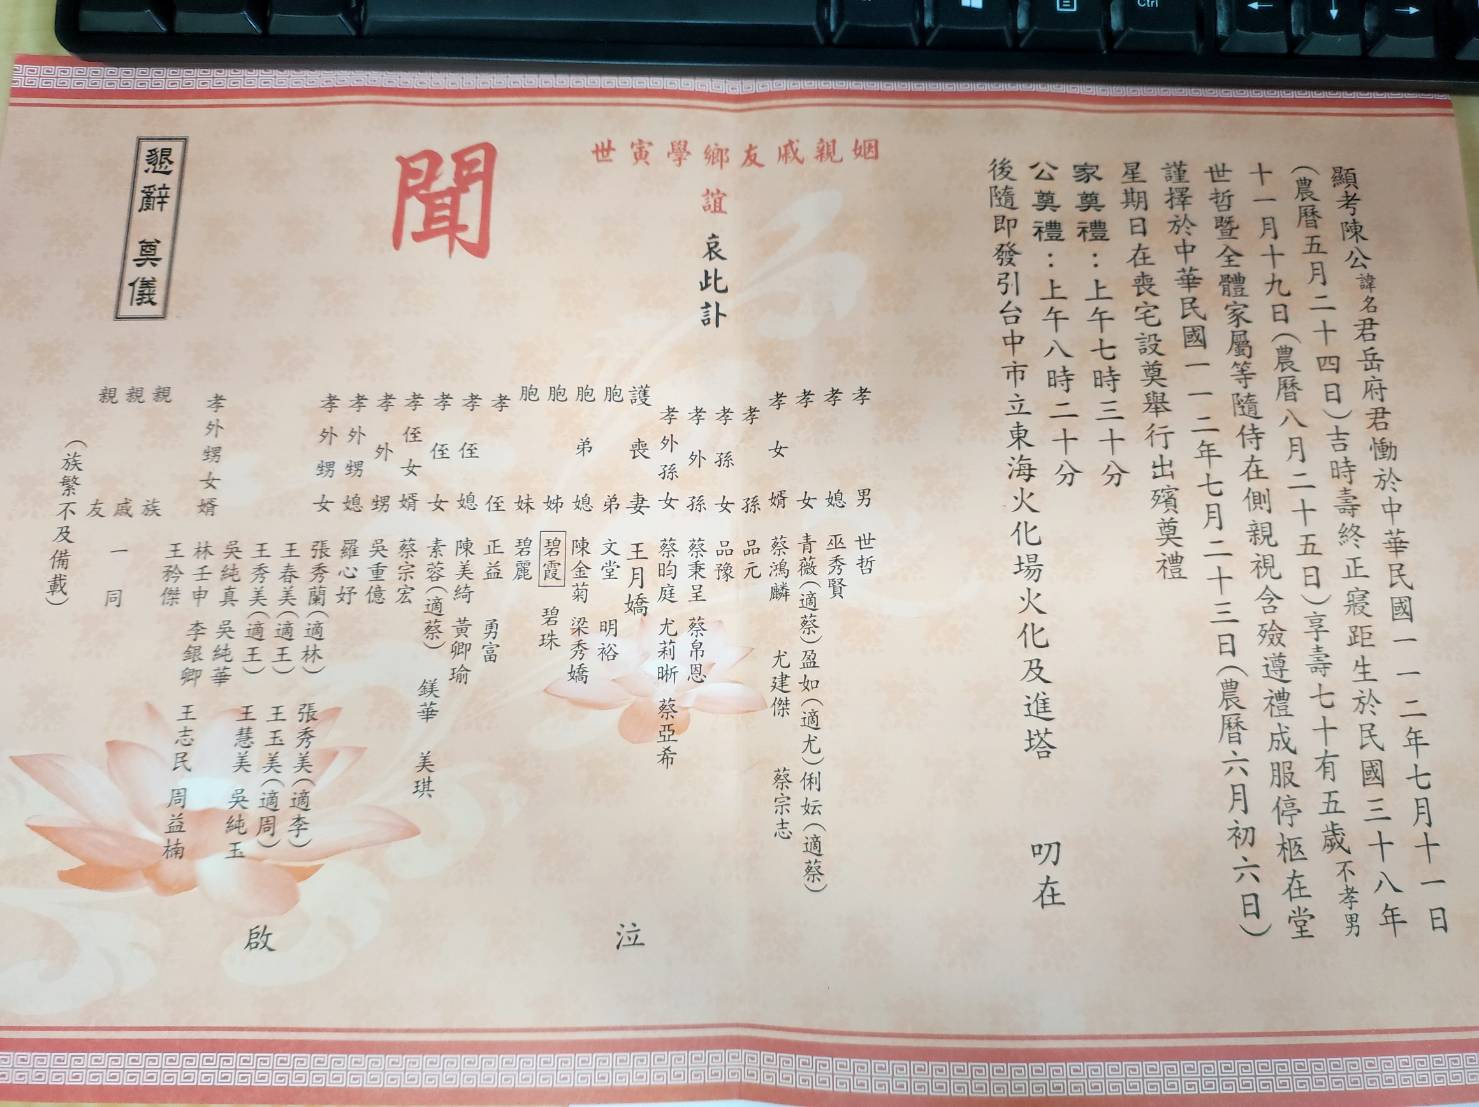 顯考陳公諱名君岳府君慟於中華民國一一二年七月十一日
(農曆五月二十四日)吉時壽終正寢距生於民國三十八年
十一月十九日(農曆八月二十五日)享壽七十有五歲不孝男
世哲暨全體家屬等隨侍在側親視含殮遵禮成服停柩在堂
謹擇於中華民國一一二年七月二十三日(農曆六月初六日)
星期日在喪宅設奠舉行出殯奠禮
家奠禮：上午七時三十分
公奠禮：上午八時二十分
後隨即發引台中市立東海火化場火化及進塔 叨在
姻親戚友鄉學寅世
誼 哀此訃
聞
孝男 世哲
孝媳 巫秀賢
孝女 青薇(適蔡)盈如(適尤)俐妘(適蔡)
孝女婿 蔡鴻麟 尤建傑 蔡宗志
孝孫 品元
孝孫女 品豫
孝外孫 蔡秉呈 蔡帛恩
孝外孫女 蔡昀庭 尤莉晰 蔡亞希
護喪妻 王月嬌
胞弟 文堂 明裕
胞弟媳 陳金菊 梁秀嬌
胞姊 碧霞 碧珠
胞妹 碧麗
孝侄 正益 勇富
孝侄媳 陳美綺 黃卿瑜
孝侄女 素蓉(適蔡) 鎂華 美琪
孝侄女婿 蔡宗宏
孝外甥 吳重億
孝外甥媳 羅心妤
孝外甥女 張秀蘭(適林) 張秀美(適李)
王春美(適王) 王玉美(適周)
王秀美(適王) 王慧美 吳純玉
吳純真 吳純華
孝外甥女婿 林壬申 李銀卿 王志民 周益楠
王矜傑
親族
親戚 一同
親友
(族繁不及備載)
泣
啟
懇辭 奠儀
Ctrl